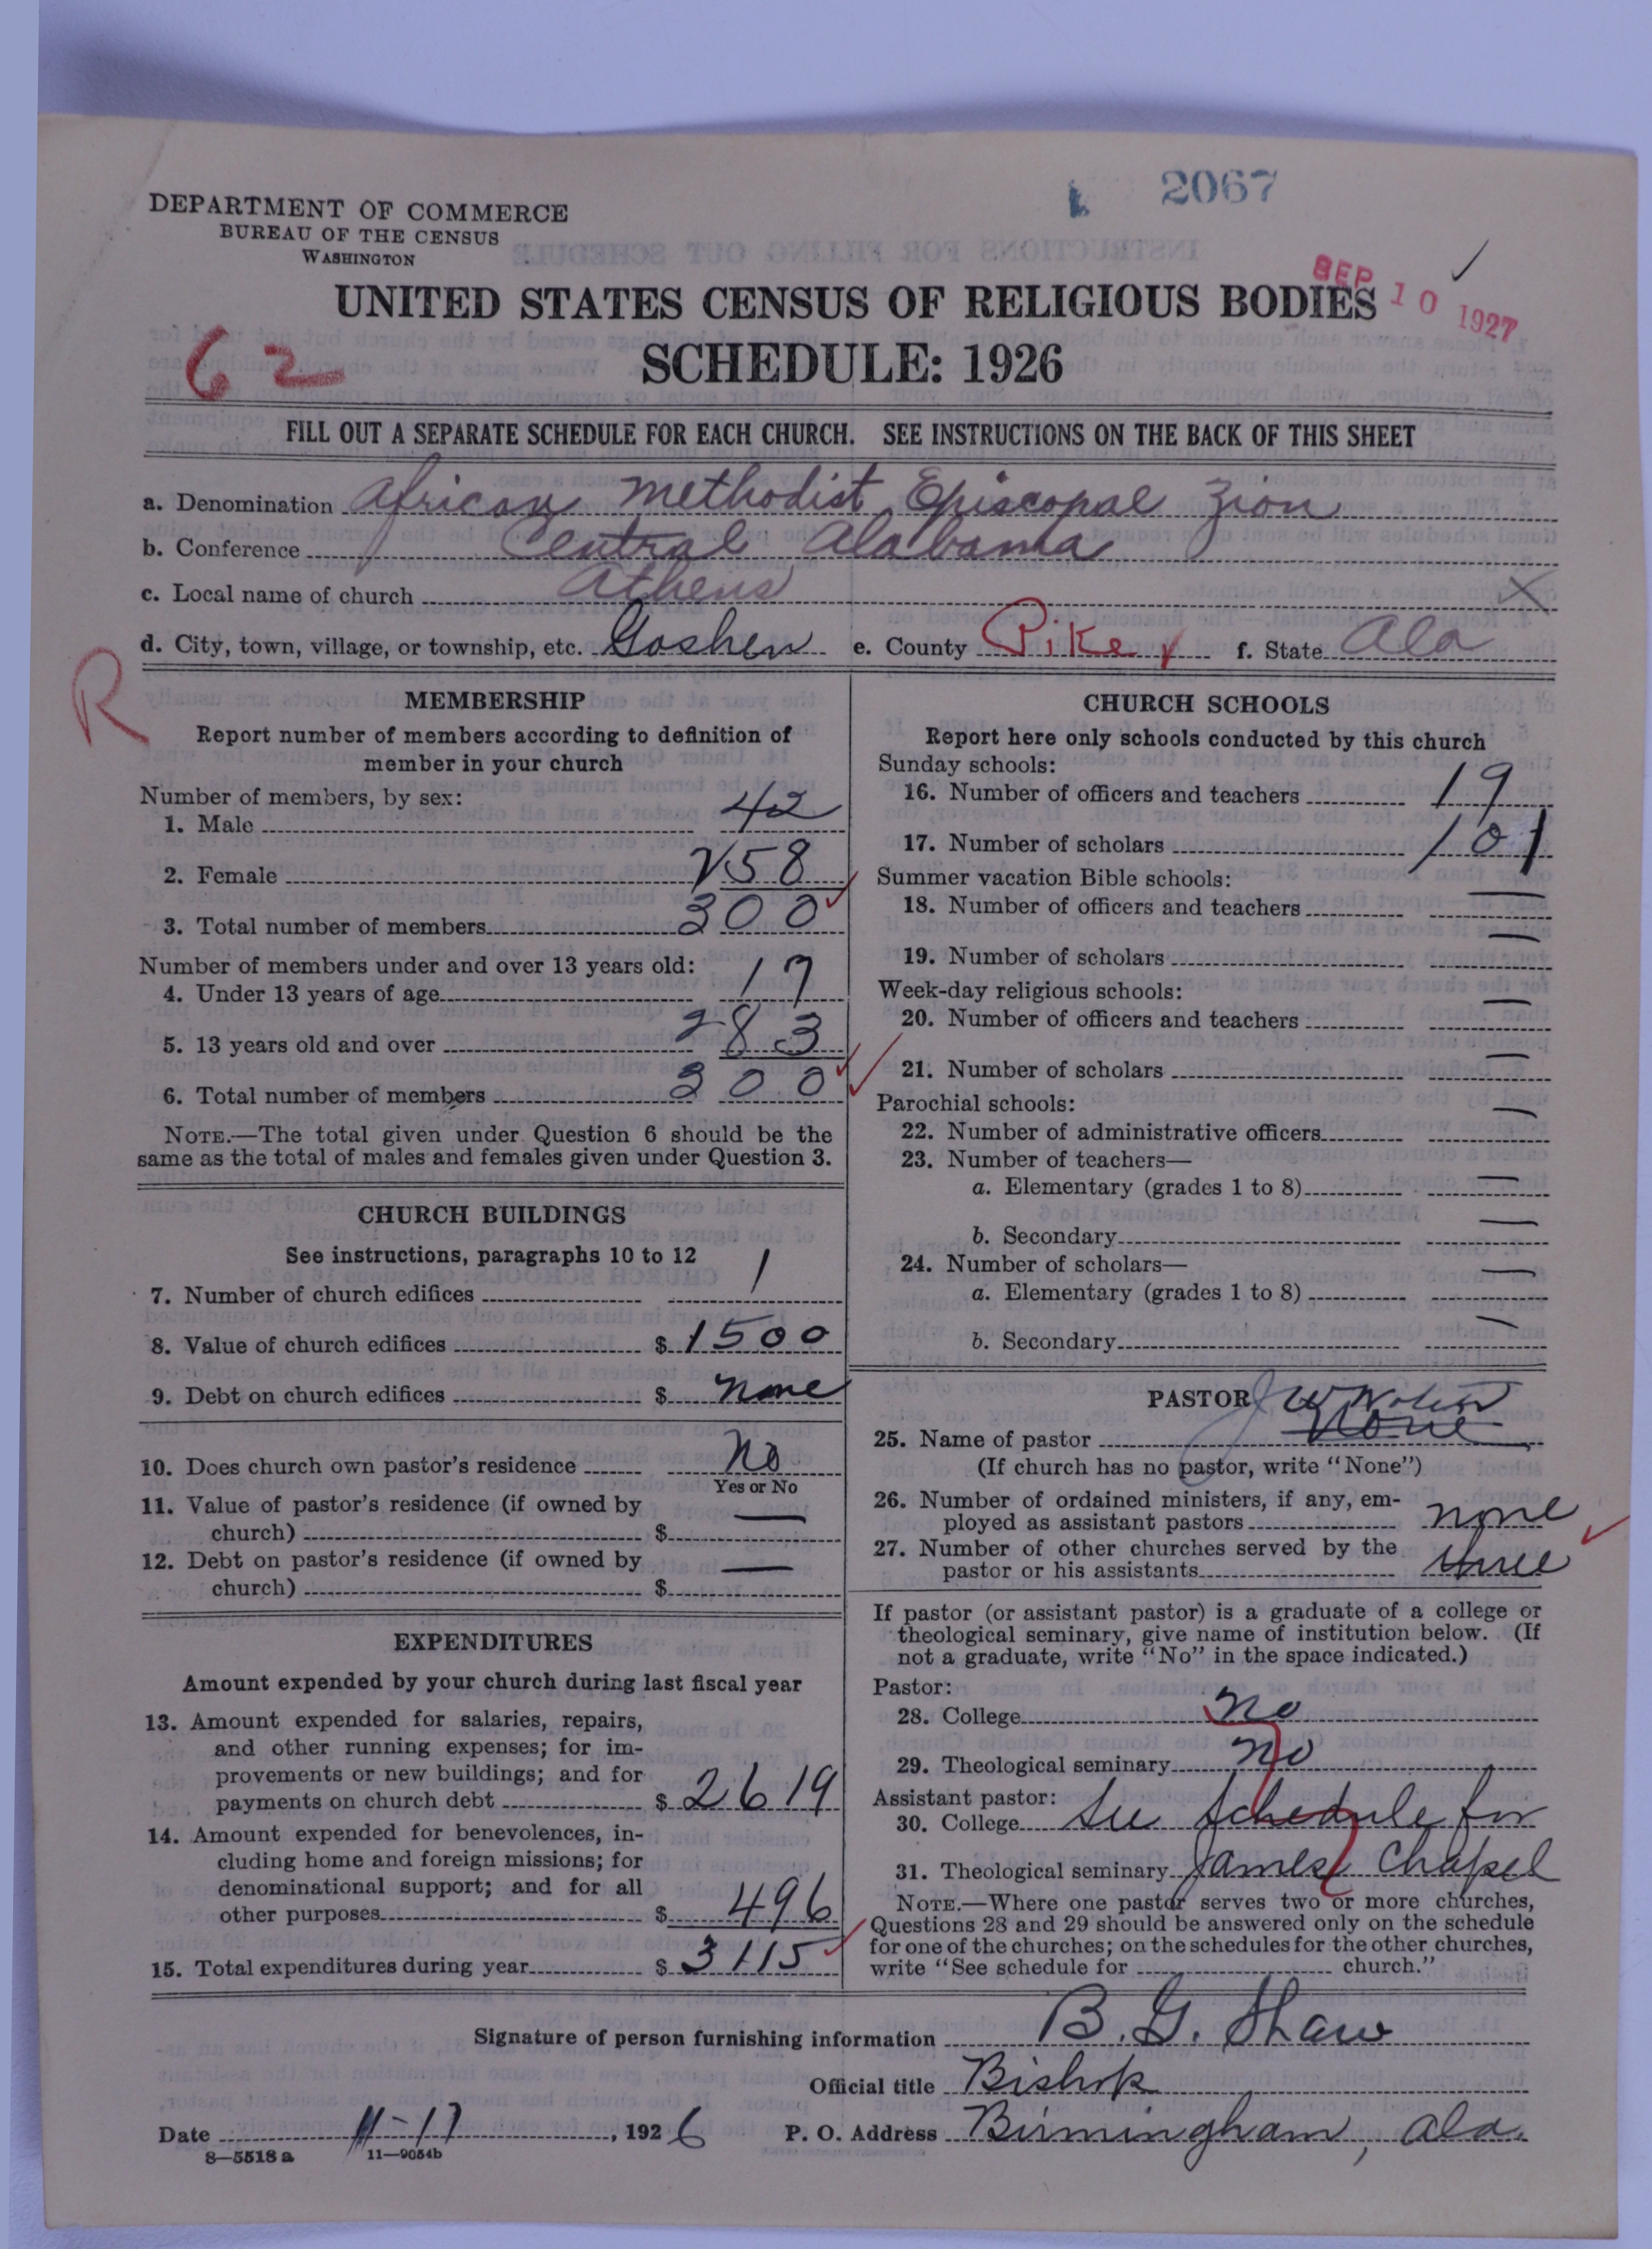 2067
DEPARTMENT OF COMMERCE
BUREAU OF THE CENSUS
WASHINGTON
SEP 10 1927
UNITED STATES CENSUS OF RELIGIOUS BODIES
62
SCHEDULE: 1926
FILL OUT A SEPARATE SCHEDULE FOR EACH CHURCH. SEE INSTRUCTIONS ON THE BACK OF THIS SHEET
a. Denomination African Methodist Episcopal Zion
b. Conference Central Alabama
c. Local name of church Athens
d. City, town, village, or township, etc. Goshen e. County Pike f. State Ala
R
MEMBERSHIP
Report number of members according to definition of
member in your church
Number of members, by sex:
1. Male 42
2. Female 258
3. Total number of members 300
Number of members under and over 13 years old:
4. Under 13 years of age 17
5. 13 years old and over 283
6. Total number of members 300
NOTE.—The total given under Question 6 should be the
same as the total of males and females given under Question 3.
CHURCH BUILDINGS
See instructions, paragraphs 10 to 12
7. Number of church edifices 1
8. Value of church edifices $ 1500
9. Debt on church edifices $ none
10. Does church own pastor's residence No
Yes or No
11. Value of pastor's residence (if owned by
church) $ —
12. Debt on pastor's residence (if owned by
church) $ —
EXPENDITURES
Amount expended by your church during last fiscal year
13. Amount expended for salaries, repairs,
and other running expenses; for im-
provements or new buildings; and for
payments on church debt $ 2619
14. Amount expended for benevolences, in-
cluding home and foreign missions; for
denominational support; and for all
other purposes $ 496
15. Total expenditures during year $ 3115
CHURCH SCHOOLS
Report here only schools conducted by this church
Sunday schools:
16. Number of officers and teachers 19
17. Number of scholars 101
Summer vacation Bible schools:
18. Number of officers and teachers —
19. Number of scholars —
Week-day religious schools:
20. Number of officers and teachers —
21. Number of scholars —
Parochial schools:
22. Number of administrative officers —
23. Number of teachers—
a. Elementary (grades 1 to 8) —
b. Secondary —
24. Number of scholars—
a. Elementary (grades 1 to 8) —
b. Secondary —
PASTOR J W
25. Name of pastor None
(If church has no pastor, write "None")
26. Number of ordained ministers, if any, em-
ployed as assistant pastors none
27. Number of other churches served by the
pastor or his assistants three
If pastor (or assistant pastor) is a graduate of a college or
theological seminary, give name of institution below. (If
not a graduate, write "No" in the space indicated.)
Pastor:
28. College no
29. Theological seminary no
Assistant pastor:
30. College See schedule for
31. Theological seminary James Chapel
NOTE.—Where one pastor serves two or more churches,
Questions 28 and 29 should be answered only on the schedule
for one of the churches; on the schedules for the other churches,
write "See schedule for church."
Signature of person furnishing information B. G. Shaw
Official title Bishop
Date 11-17, 1926 P. O. Address Birmingham, Ala.
8—5518 a 11—9054b